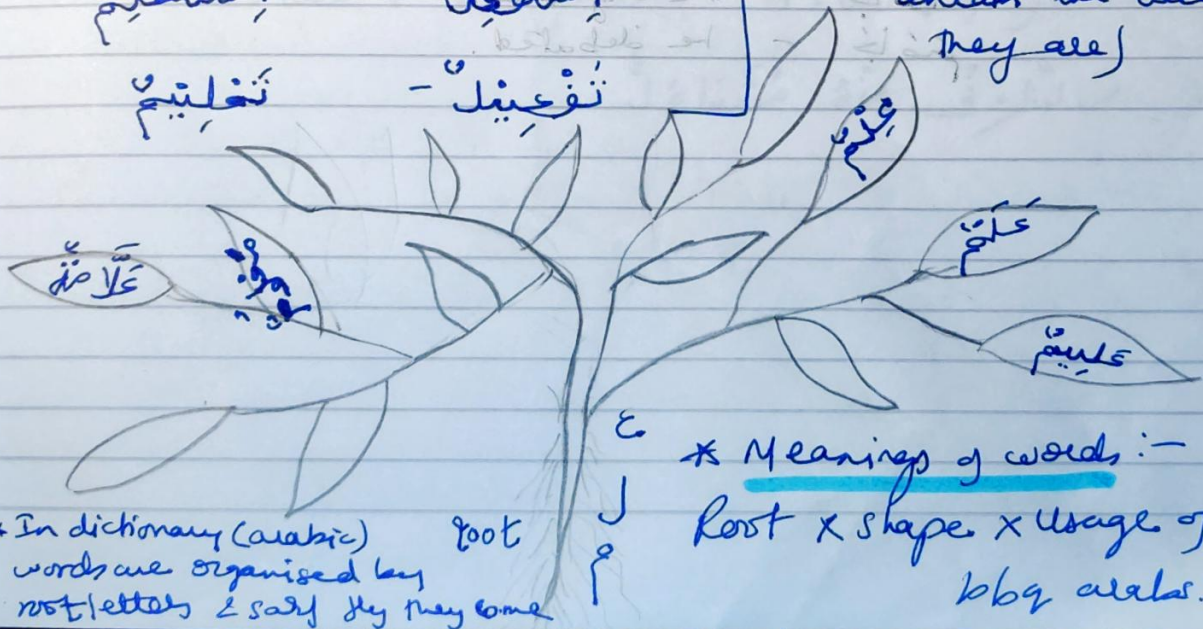 they are)
تَفْعِيْلٌ - تَعْلِيْمٌ
عِلْمٌ
عَلَمٌ
عَلَّامَةٌ
عَلِيمٌ
ع
ل
م
root
* Meanings of words :-
Root x shape x usage of
bbq arabs.
* In dictionary (arabic)
words are organised by
root letters & sarf they come